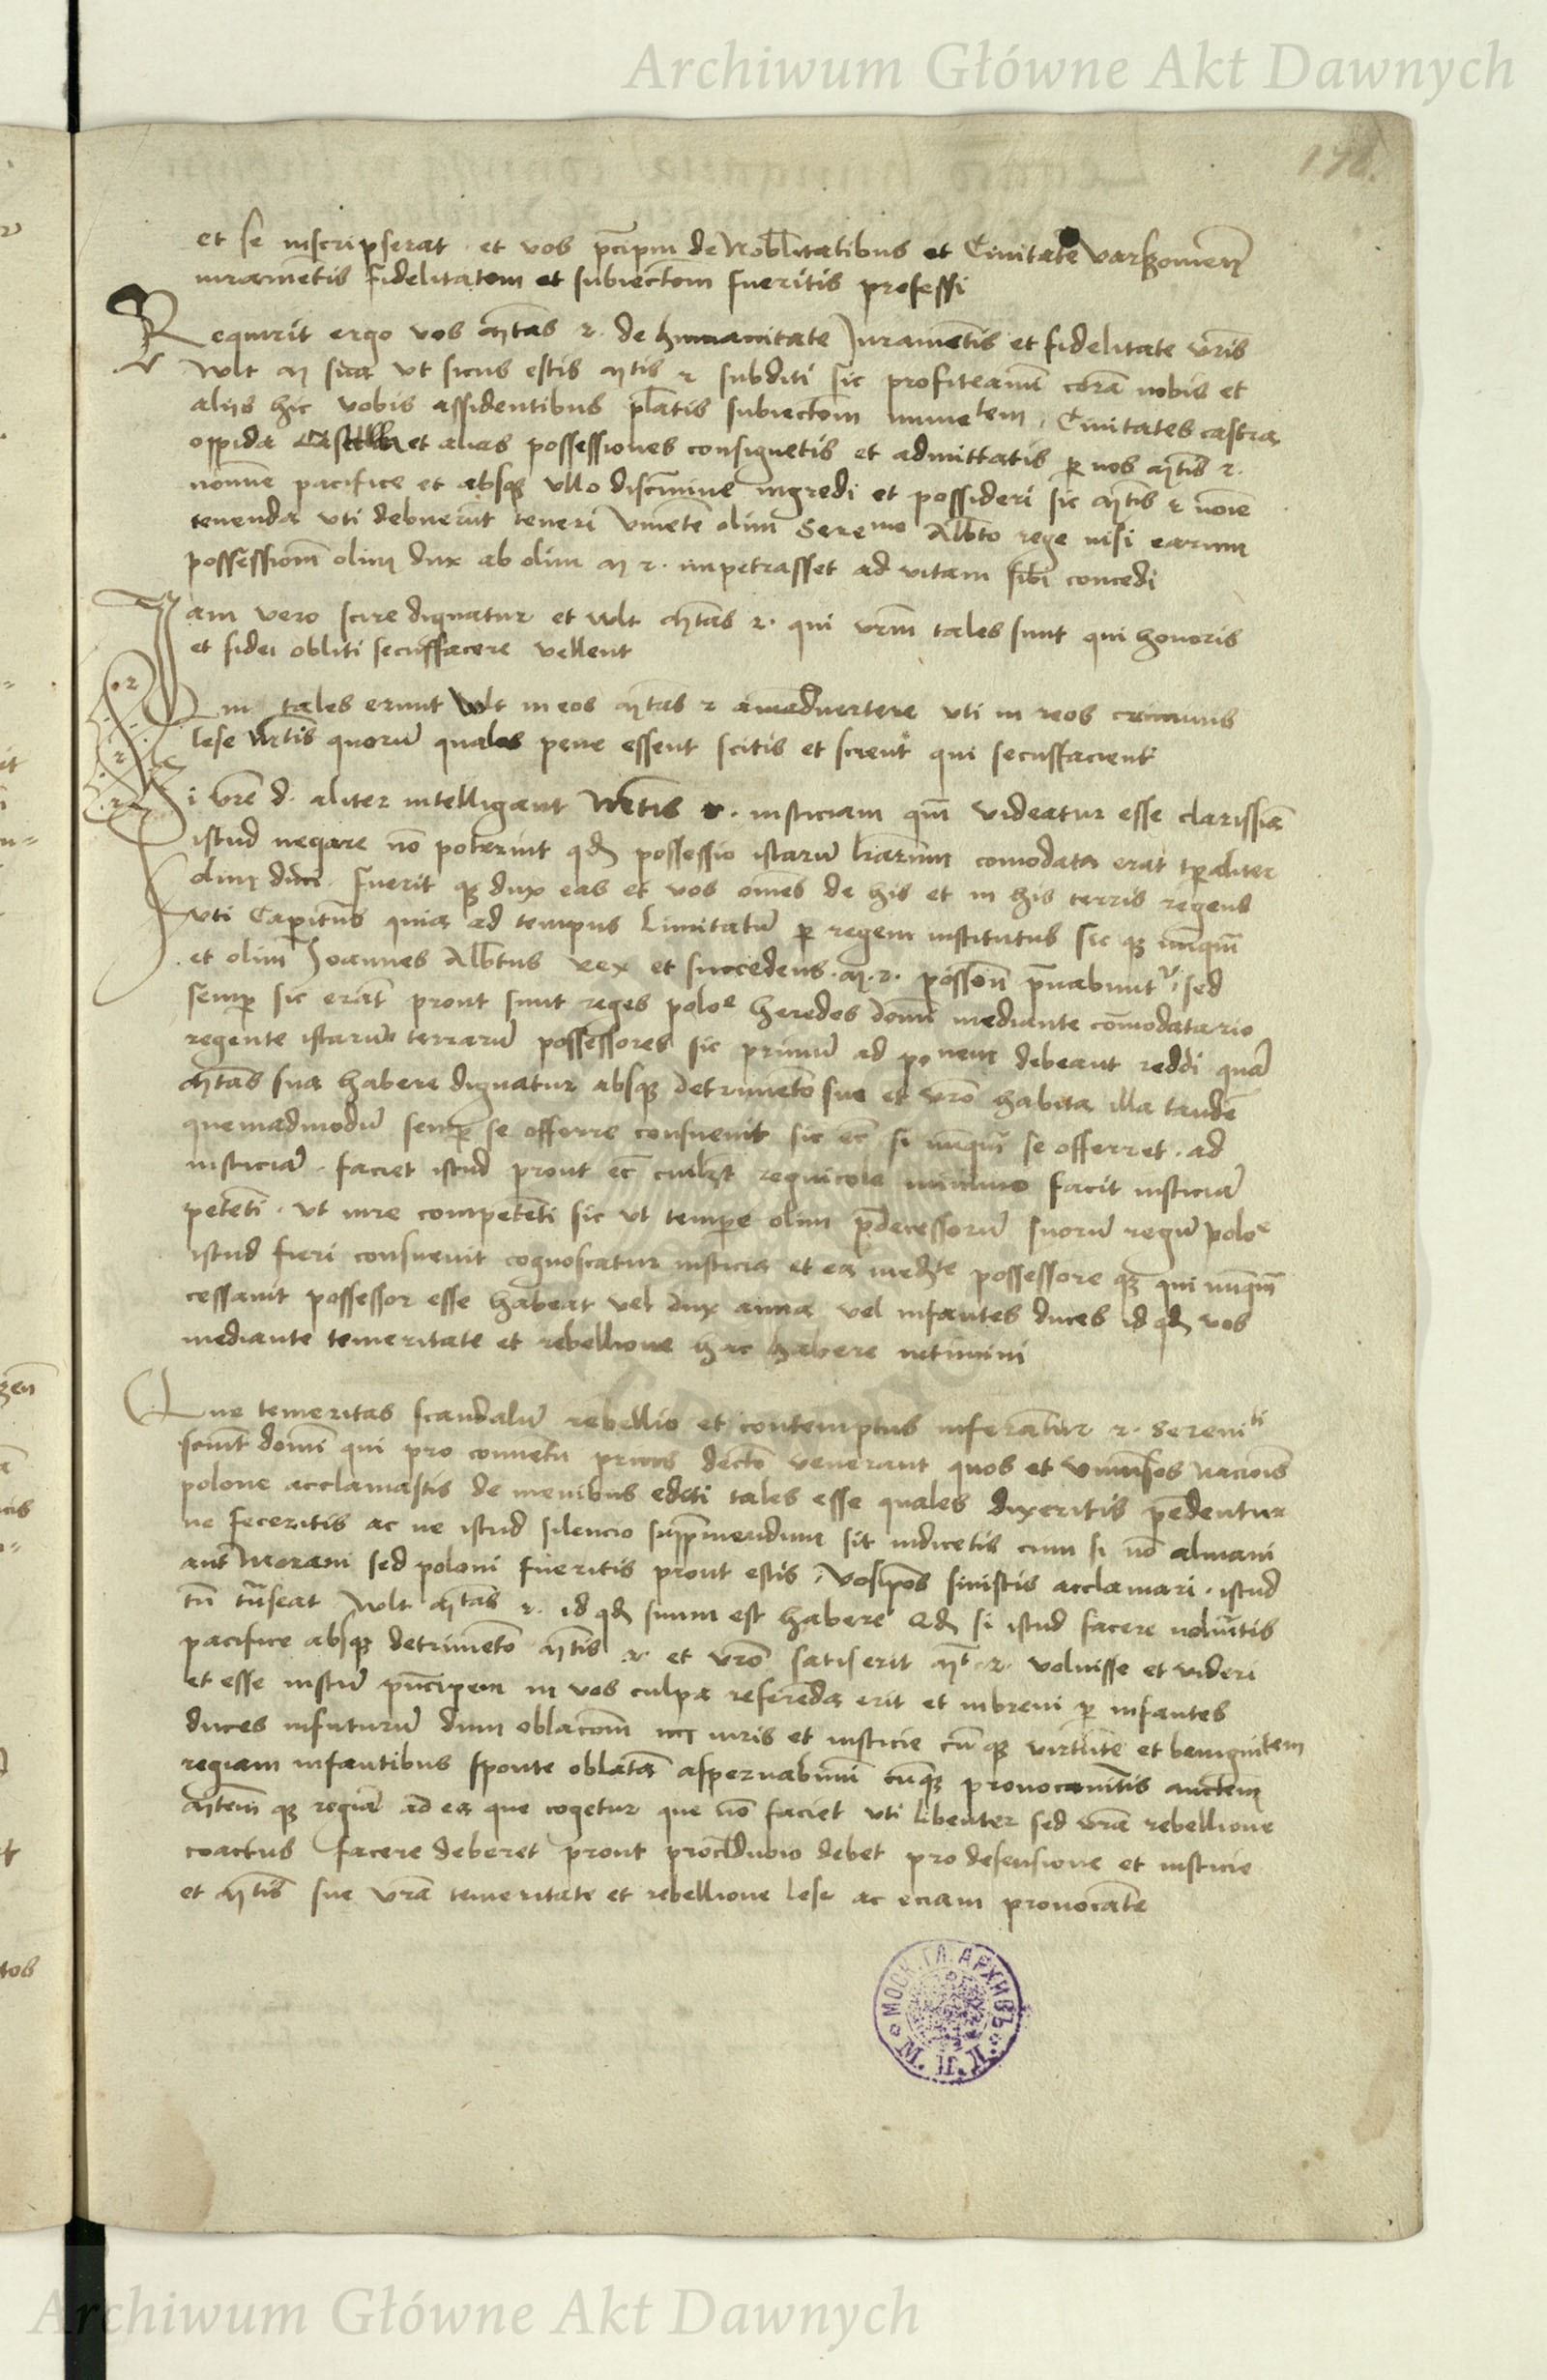 Archiwum Główne Akt Dawnych
198.
et se inscripserat et vos p̄cipui de Nobilitatibus et Civitate Varschowien̄
iuramētis fidelitatem et subiectōem fueritis professi
Requirit ergo vos Mtas r. de humanitate Juramētis et fidelitate vr̄is
wlt M sua ut sicut estis Mtis r subditi sic profiteamī corā nobis et
alijs hic vobis assidentibus p̄latis subiectōem Civitates castra
oppida et alias possessiones consignetis et admittatis p nos Mtis r.
noīne pacifice et absqȝ ullo discrimine ingredi et possideri sic Mtis r noīe
tenenda uti debuerūt teneri viuēte olim Sere^mo Alb̄to rege nisi earum
possessionem olim dux ab olim M r. impetrasset ad vitam sibi concedi
Jam vero scire dignatur et wlt Mtas r. qui vr̄m tales sunt qui honoris
et fidei obliti secusfacere vellent
Qui tales erunt wlt in eos Mtas r animaduertere uti in reos criminis
lese Mtis quorū quales pene essent scitis et scient qui secusfacient
Si vr̄e d. aliter intelligant Mtis r. iusticiam qm̄ videatur esse clarissīa
istud negare nō poterint qđ possessio istarū terrarum comodata erat tp̄aliter
olim duci fuerit qȝ dux eas et vos om̄es de his et in his terris regens
uti Capitan̄s quia ad tempus limitatū p regem institutus sic qȝ nunqm̄
et olim Joannes Alb̄tus rex et succedens M. r. possōe p̄uabunt^r, sed
semp sic erant prout sunt reges polo^r heredes domī mediante comodatario
regente istarū terrarū possessores sic primū ad po^nem debeant reddi quā
Mtas sua habere dignatur absqȝ detrimēto suo et vr̄o habita illa tandē
quemadmodū semp se offerre consueuit sic ec̄ si nunqm̄ se offerret ad
iusticiā faciet istud prout ec̄ cuilibet regnicole minimo facit iusticiā
petēti ut iure competēti sic ut tempore olim p̄decessorū suorū regū polo^r
istud fieri consueuit cognoscatur iusticia et ea mediāte possessore qȝ qui nunqm̄
cessauit possessor esse habeat vel dux anna vel infantes duces id qđ vos
mediante temeritate et rebellione hac habere nitimini
Que temeritas scandalū rebellio et contemptus inferantur r. Sereni^ti
sciunt domī qui pro conuentu prius dicto venerant quos et uniuersos nacionis
polone acclamastis de menibus editi tales esse quales dixeritis
ne feceritis ac ne istud silencio supprimendum sit iudicetis cum si nō almani
aut Moraui sed poloni fueritis prout estis, vosipos sinistis acclamari. istud
tn̄ trāseat wlt Mtas r. id qđ suum est habere Qđ si istud facere nolueritis
pacifice absqȝ detrimēto Mtis r. et vr̄o satis erit Mti r. voluisse et videri
et esse iustū principem in vos culpa referenda erit et inbreui p infantes
duces infuturū dum oblacionem iuris et iusticie cū qȝ virtutem et benignitem
regiam infantibus sponte oblatā aspernabimī
Mtem qȝ regiā ad ea que cogetur que nō faciet uti libenter sed vr̄a rebellione
coactus facere deberet prout proculdubio debet pro defensione et iusticie
et Mtis sue vr̄a temeritate et rebellione lese ac eciam prouocate
МОСК. ГЛ. АРХИВЪ М. И. Д.
Archiwum Główne Akt Dawnych